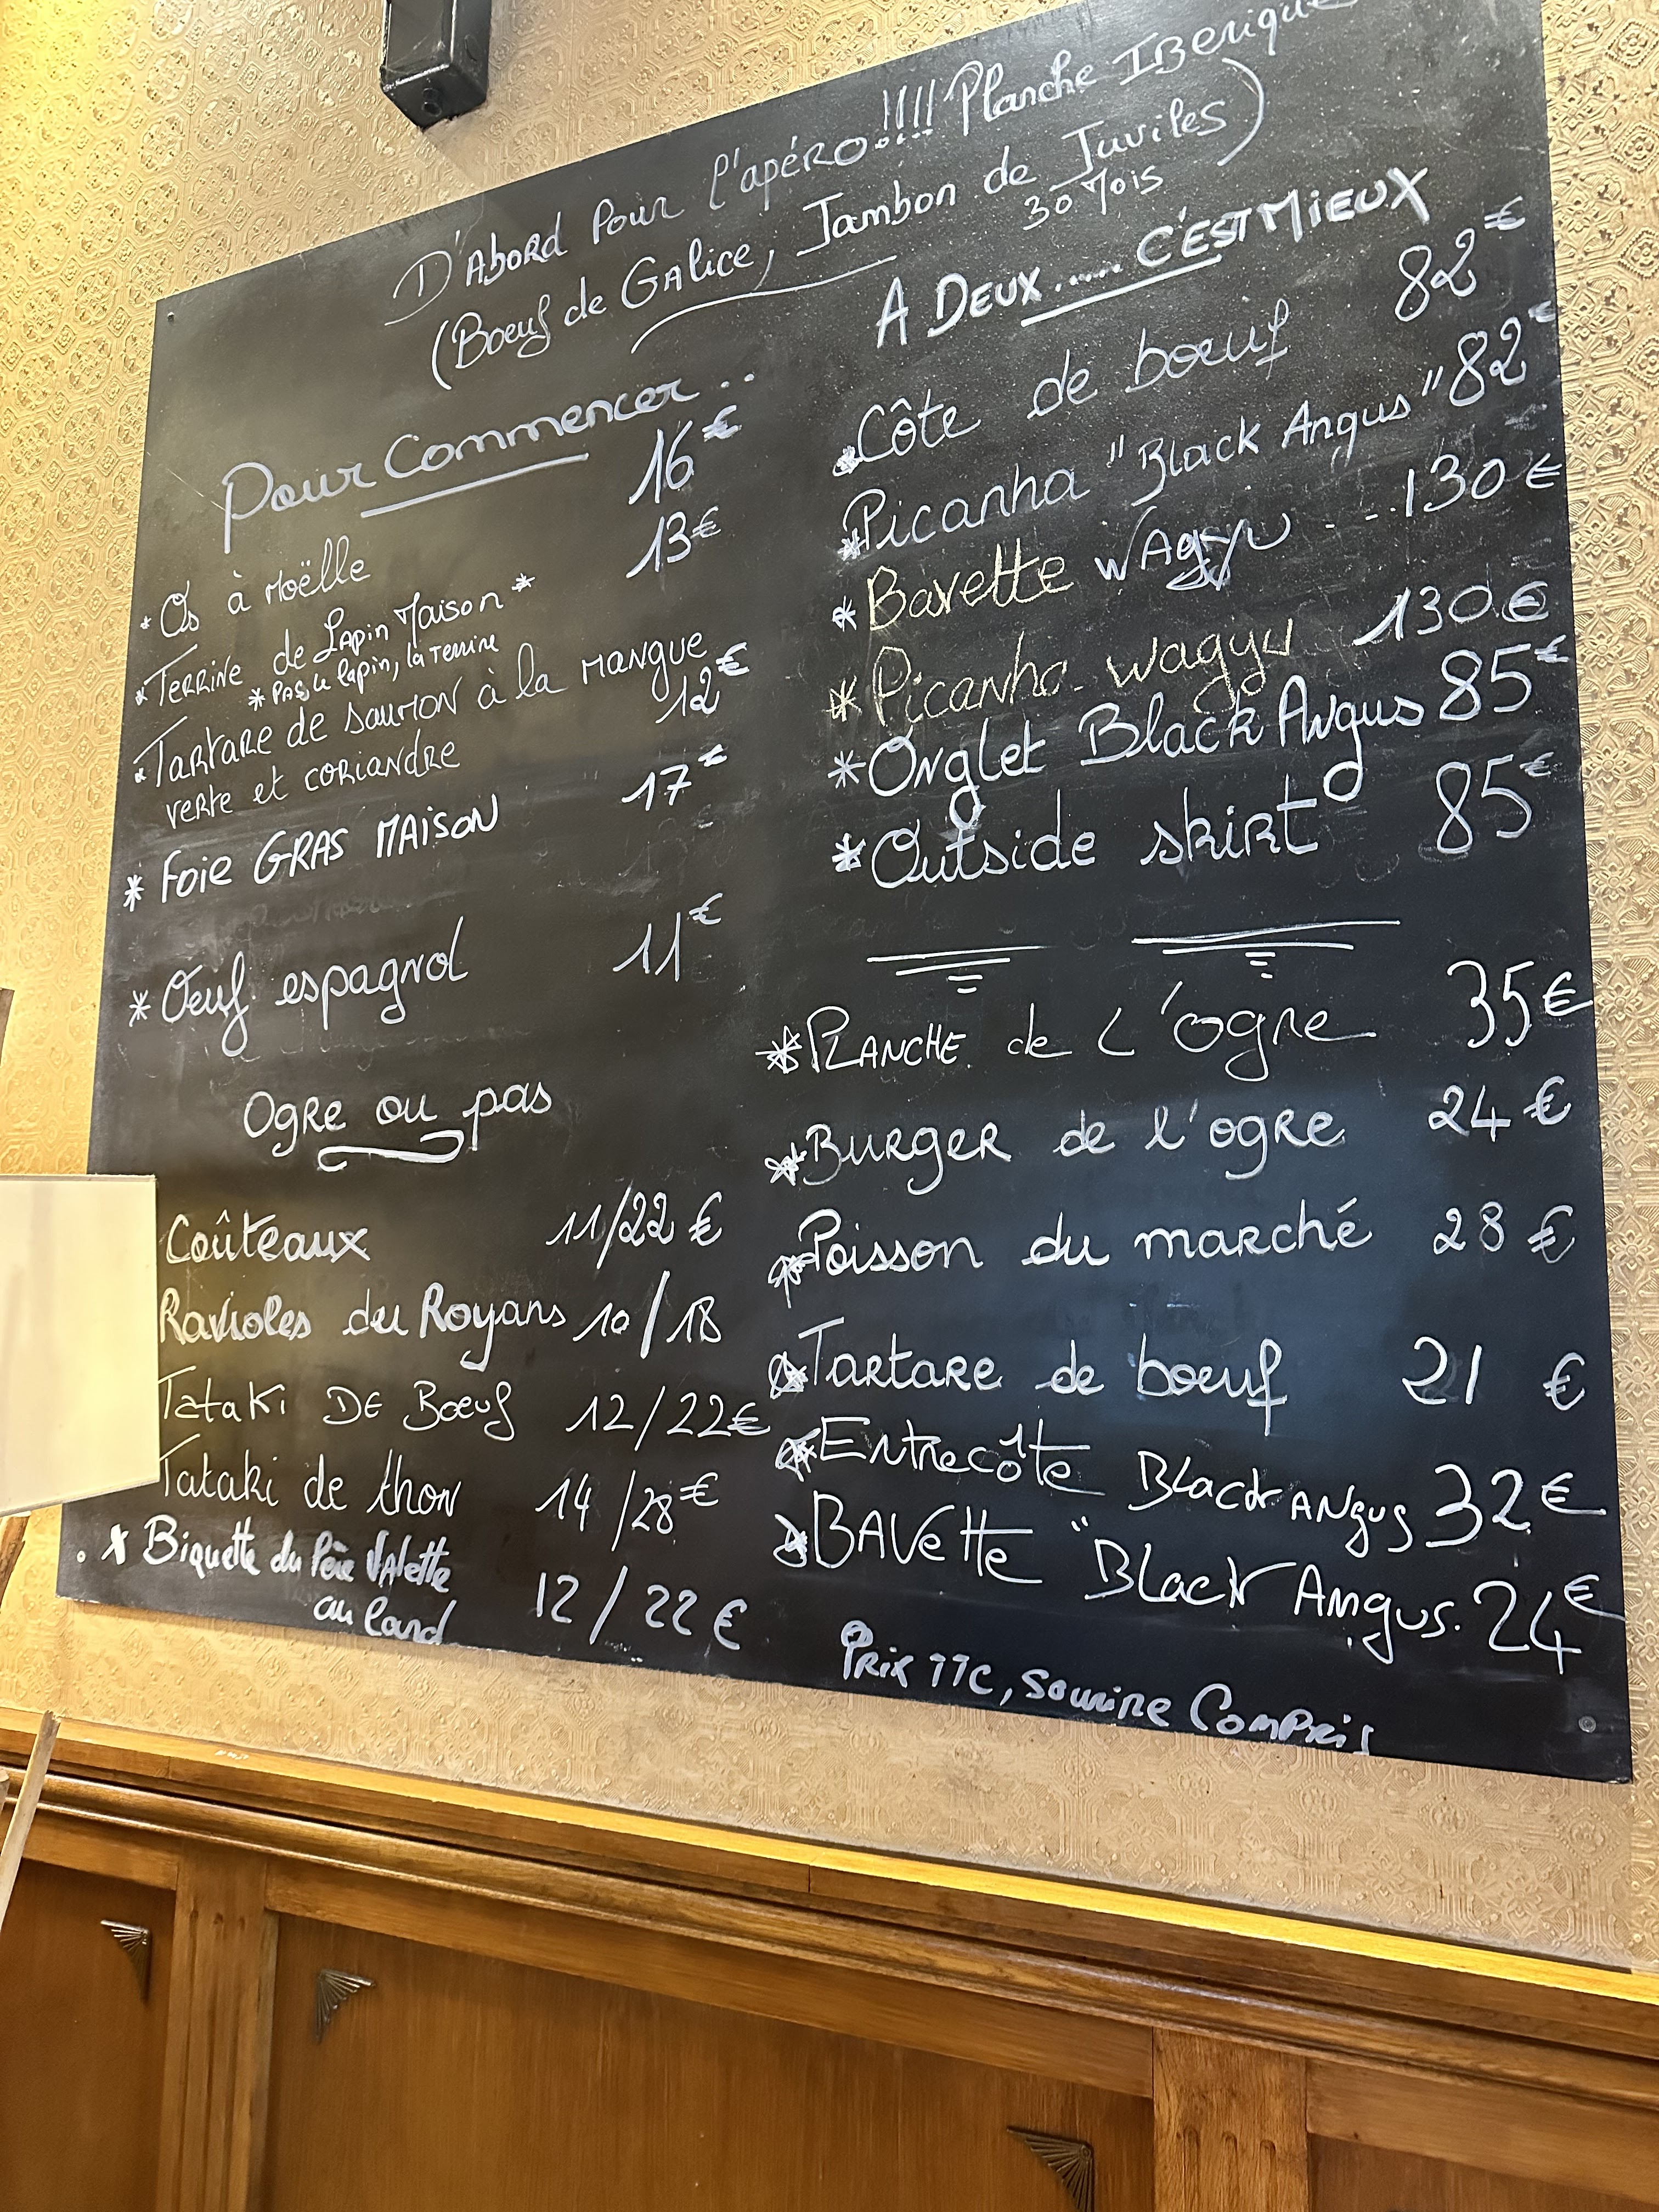 D'Abord Pour l'apéro!!!! Planche IBerique
(Boeuf de Galice, Jambon de Juviles)
30 Mois
Pour Commencer..
* Os à Moëlle 16€
* Terrine de Lapin Maison * 13€
* Pas le lapin, la Terrine
* Tartare de saumon à la mangue
verte et coriandre 12€
* Foie GRAS MAison 17€
* Oeuf espagnol 11€
Ogre ou pas
Coûteaux 11/22 €
Ravioles du Royans 10/18
Tataki DE Boeuf 12/22€
Tataki de thon 14/28€
* Biquette du Père Valette
au lard 12/22€
A DEUX...... C'EST MiEUX
* Côte de boeuf 82€
* Picanha "Black Angus" 82€
* Bavette wagyu ....130€
* Picanha wagyu 130€
* Onglet Black Angus 85€
* Outside skirt 85€
* PLANCHE de L'ogre 35€
* Burger de l'ogre 24€
* Poisson du marché 28€
* Tartare de boeuf 21 €
* Entrecôte Black Angus 32€
* BAVette "Black Angus. 24€
Prix TTC, Service Compris